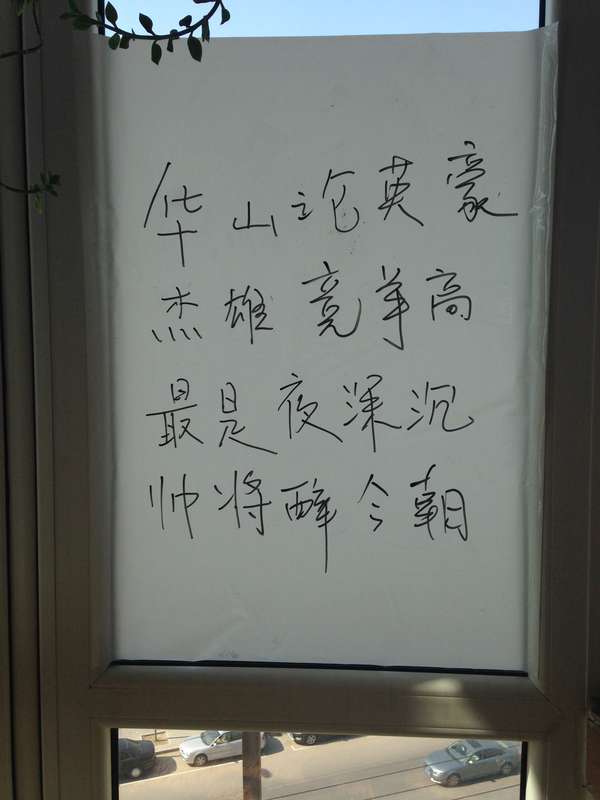 华山论英豪
杰雄竞争高
最是夜深沉
帅将醉今朝